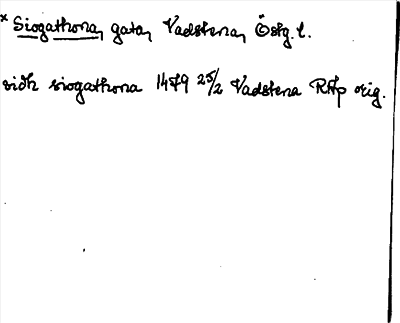 × Siogathona, gata, Vadstena, Östg. l.
vidh siogathona 1479 25/2 Vadstena RAp orig.